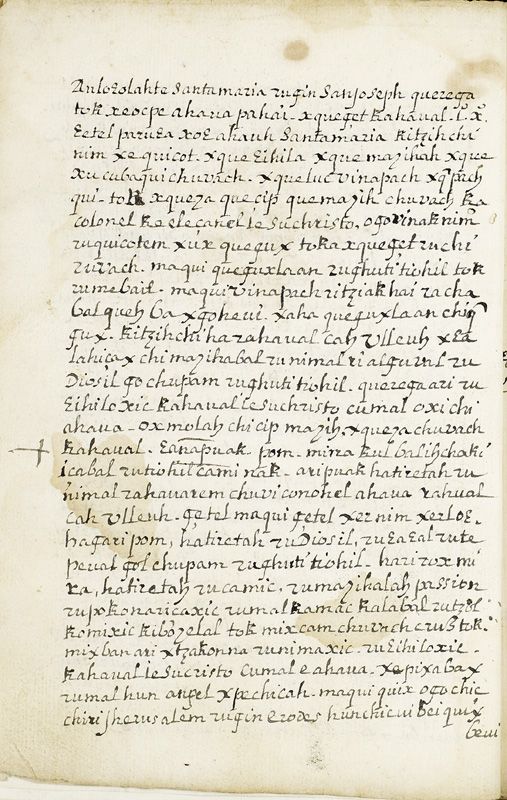 Aulozolahte Santamaria rugin Sanjoseph querega
tok xeocpe ahaua pahai. xqueget kahaual. I. X.
Eetel paruεa xoε ahauh Santamaria kitzih chi
nim xe quicot. xque Eihila xque mayihah xque
xu cubaqui chuvach. xqueluc vinapach xq̃ pach
qui. tok xqueya que cip quemayih chuvach ka
colonel ke elecanel Iesuchristo, ogo vinak nim
ruquicotem xux quegux toka xqueget ruchi
ruvach. maqui queguxlaan rughuti tiohil tok
rumebail. maqui vinapach ritziak hai racha
bal queh ba xgohevi. xaha queguxlaan chi
gux. kitzih chi ha rahaual cah Vlleuh xεa
lahicax chi mayihabal runimal ri alguval ru
Diosil go chupam rughuti tiohil. queregaari ru
Eihiloxic kahaual Iesuchristo cumal oxi chi
ahaua. ox molah chi cip mayih. xqueya chuvach
kahaual. Eanapuak. pom. mira kul balih chaki
icabal rutiohil caminak. ari puak hatiretah ru
nimal rahauarem chuvi conohel ahaua rahual
cah Vlleuh. getel maqui getel xernim xerloε.
hagari pom, hatiretah ruDiosil, ruεaεal rute
peual gol chupam rughuti tiohil. hari rox mi
ra, hatiretah rucamic, rumayihalah passion
rupokonaricaxic rumal kamac kalabal rutzel
komixic kiboyelal tok mixcam chuvach cruš tok.
mixban ari xtzakonna runimaxic. ruEihiloxic.
kahaual Iesucristo cumal e ahaua. xepixabax
rumal hun angel xpechicah. maqui quix ogo chic
chiri Jherusalem rugin erodes hunchic vi bei quix
bevi